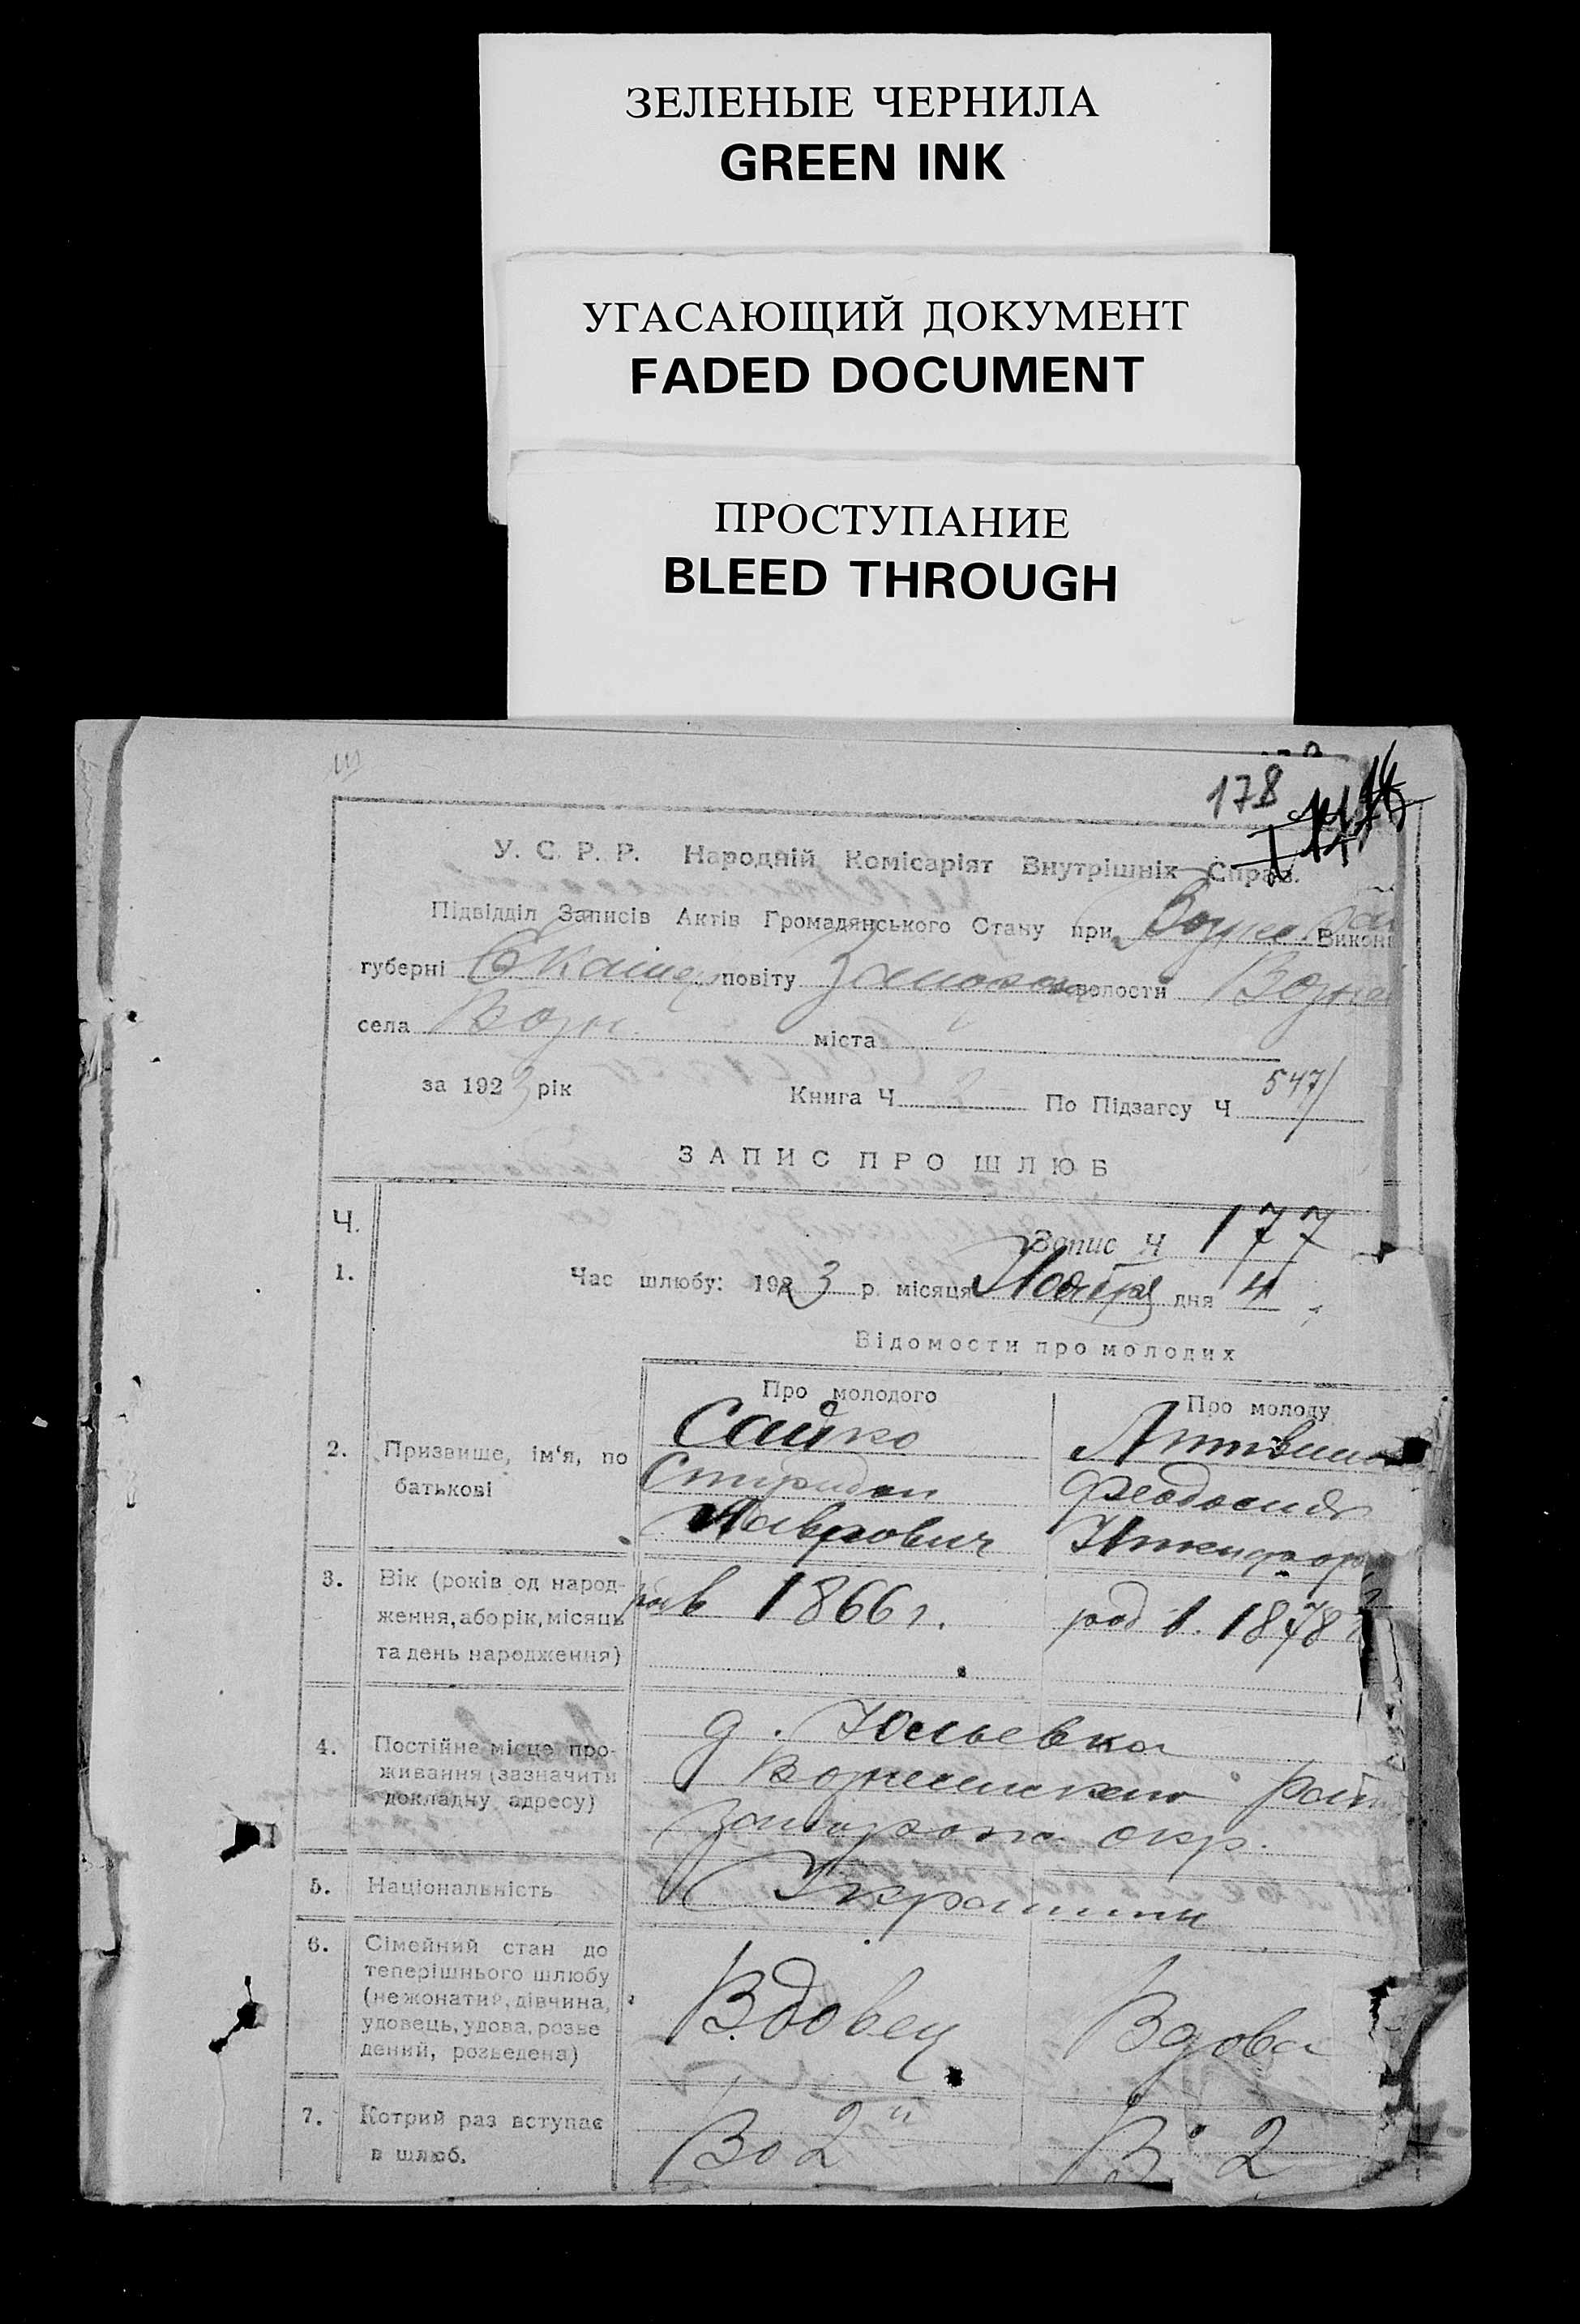 ЗЕЛЕНЫЕ ЧЕРНИЛА
GREEN INK
УГАСАЮЩИЙ ДОКУМЕНТ
FADED DOCUMENT
ПРОСТУПАНИЕ
BLEED THROUGH
178
У. С. Р. Р. Народній Комісаріят Внутрішніх Справ.
Підвідділ Записів Актів Громадянського Стану при Викон
губерні Екатер повіту волости Возне
села Возн міста
за 1923 рік Книга Ч 2 По Підзагсу Ч 547
ЗАПИС ПРО ШЛЮБ
Ч. Запис Ч 177
1. Час шлюбу: 1923 р. місяця Ноября дня 4
Відомости про молодих
Про молодого Про молоду
2. Призвище, ім'я, по батькові
Сайко Литвин
Спиридон Феодосия
Лаврович Никифор
3. Вік (років од народ-
ження, або рік, місяць
та день народження)
1866 г. род в. 1878
4. Постійне місце про-
живання (зазначити
докладну адресу)
д. Юльевка
Вознесенского Рай
окр.
5. Національність
Украинци
6. Сімейний стан до
теперішнього шлюбу
(нежонатий, дівчина,
удовець, удова, розве
дений, розведена)
Вдовец Вдова
7. Котрий раз вступає
в шлюб.
Во 2й В 2